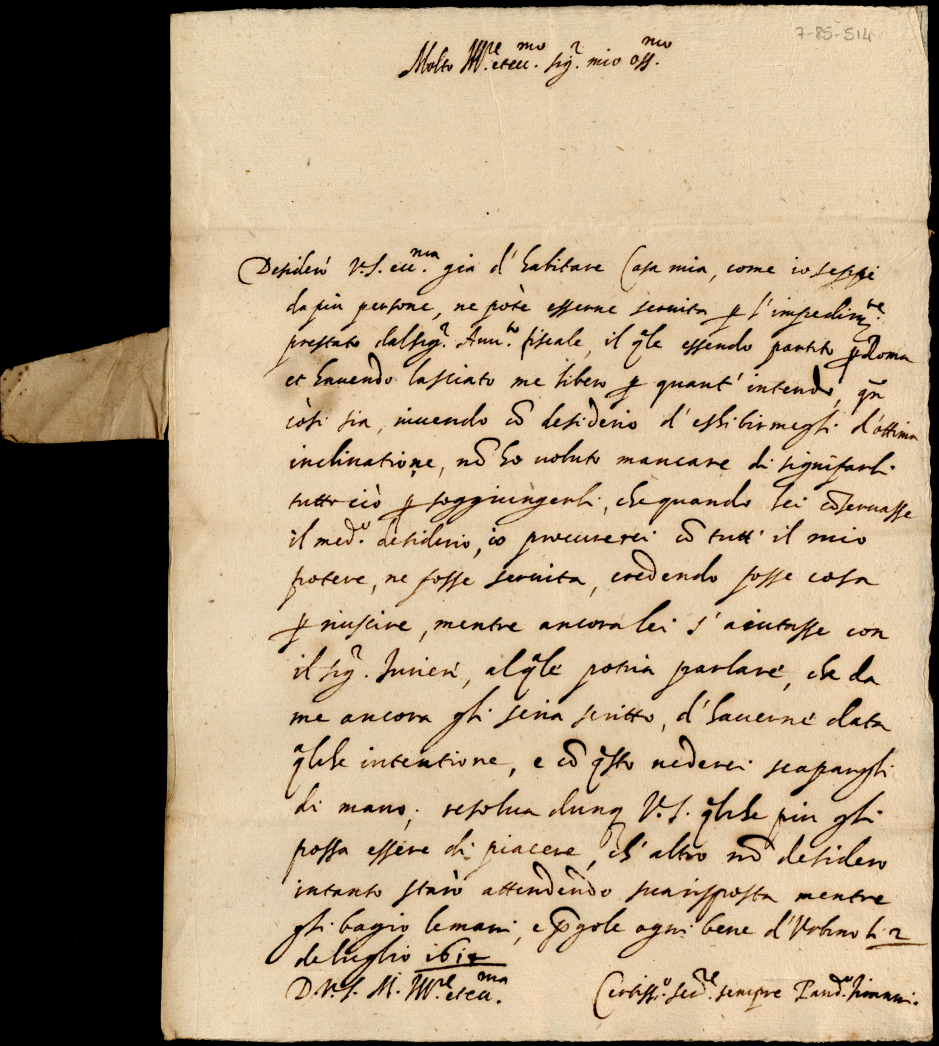 7-85-514
Molto Ill.re et ecc.mo sig.r mio oss.mo
Desiderò V.S. ecc.ma già d'habitare Casa mia, come io seppi
da più persone, ne potè esserne servita p l'impedim.te
prestato dal sig.r Avv.to fiscale, il qle essendo partito p Roma
et havendo lasciato me libero p quant'intendo, qn
così sia, vivendo cõ desiderio d'essibirmegli d'ottima
inclinatione, nõ ho voluto mancare di significarli
tutto ciò p soggiungerli, che quando lei cõservasse
il med.o desiderio, io procurerei cõ tutt'il mio
potere, ne fosse servita, credendo fosse cosa
p riuscire, mentre ancora lei s'aiutasse con
il sig.r al qle potria parlare, che da
me ancora gli seria scritto, d'haverne data
qlche intentione, e cõ qsto vederei
di mano; resolva dunq V.S. qlche più gli
possa essere di piacere, ch'altro nõ desidero
intanto starò attendendo sua risposta mentre
gli bagio le mani, e pgole ogni bene d'Urbino li 2
de luglio
D.V.S. M. Ill.re et ecc.ma
Certiss.o ser.re sempre